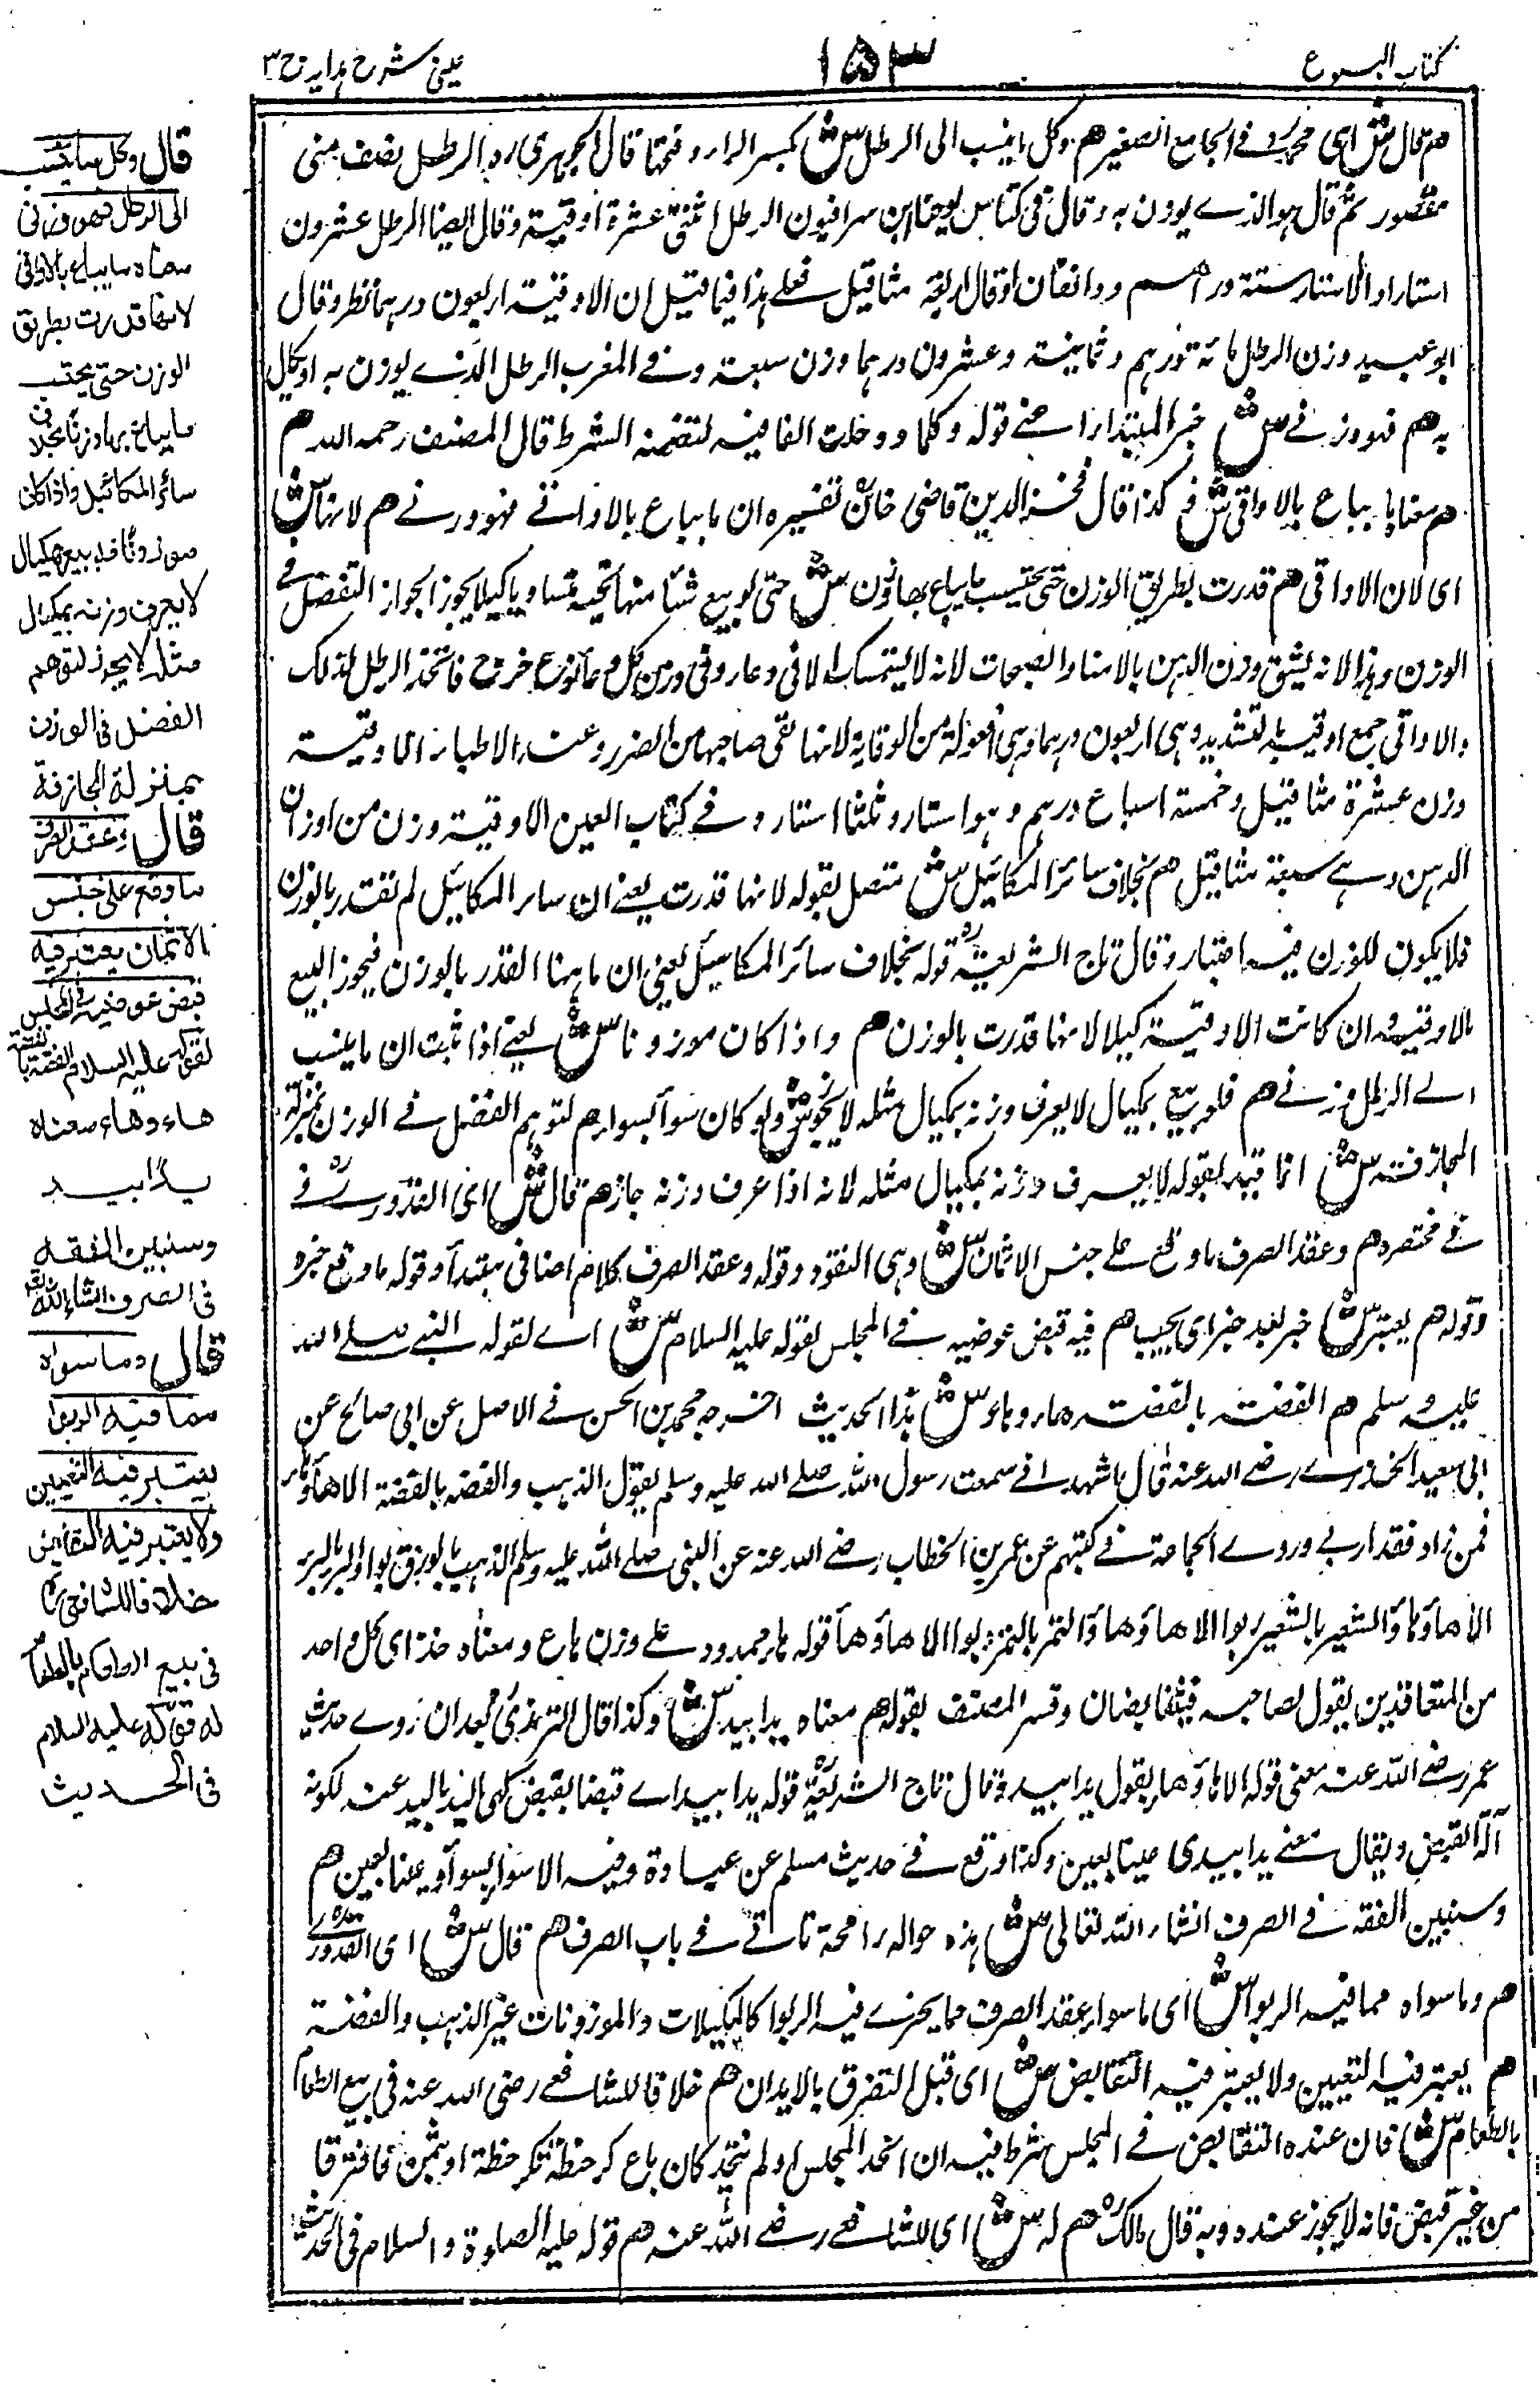 كتاب البيوع
١٥٣
عينى شرح هدايه ج ٣
هم قال ش اى محمد فى الجامع الصغير هم وكل ما ينسب الى الرطل ش بكسر الراء وفتحها قال الجوهرى ره الرطل نصف منى
مقصور ثم قال هو الذى يوزن به وقال فى كتاب يوحنا ابن سرافيون الرطل اثنتى عشرة اوقية وقال ايضا الرطل عشرون
استارا والاستار ستة دراهم ودانقان او قال اربعة مثاقيل فعلى هذا فيما قيل ان الاوقية اربعون درهما نظر وقال
ابو عبيد وزن الرطل مائة درهم وثمانية وعشرون درهما وزن سبعة وفى المغرب الرطل الذى يوزن به او يكال
به هم فهو وزنى ش خبر المبتدا اعنى قوله وكلما ودخلت الفا فيه لتضمنه الشرط قال المصنف رحمه الله هم
هم معناه ما يباع بالاواقى ش كذا قال فخر الدين قاضى خان تفسيره ان ما يباع بالاواقى فهو وزنى هم لانها ش
اى لان الاواقى هم قدرت بطريق الوزن حتى يحتسب ما يباع بها وزنا ش حتى لو بيع شئ منها بجنسه متساويا كيلا يجوز لجواز التفضل فى
الوزن وهذا لانه يشق وزن الدهن بالامنا والصنجات لانه لا يستمسك الا فى وعاء وفى وزن كل وعاء نوع حرج فاتخذ الرطل لذلك
والاواقى جمع اوقية بالتشديد وهى اربعون درهما وهى افعولة من الوقاية لانها تقى صاحبها من الضرر وعند الاطباء الاوقية
وزن عشرة مثاقيل وخمسة اسباع درهم وهو استار وثلثا استار وفى كتاب العين الاوقية وزن من اوزان
الدهن وهى سبعة مثاقيل هم بخلاف سائر المكائيل ش متصل بقوله لانها قدرت يعنى ان سائر المكاييل لم تقدر بالوزن
فلا يكون للوزن فيه اعتبار وقال تاج الشريعة ره قوله بخلاف سائر المكاييل يعنى ان ما هنا القدر بالوزن فيجوز البيع
بالاوقية وان كانت الاوقية كيلا لانها قدرت بالوزن هم واذا كان موزونا ش يعنى اذا ثبت ان ما ينسب
الى الرطل وزنى هم فلو بيع بمكيال لا يعرف وزنه بمكيال مثله لا يجوز ش ولو كان سوأ بسواء هم لتوهم الفضل فى الوزن بمنزلة
المجازفة ش انما قيد بقوله لا يعرف وزنه بمكيال مثله لانه اذا عرف وزنه جاز هم قال ش اى القدورى ره فى
فى مختصره هم وعقد الصرف ما وقع على جنس الاثمان ش وهى النقود وقوله وعقد الصرف كلام اضافى مبتدأ وقوله ما وقع خبره
وقوله هم يعتبر ش خبر بعد خبر اى يجب هم فيه قبض عوضيه فى المجلس لقوله عليه السلام ش اى لقوله النبى صلى الله
عليه وسلم هم الفضة بالفضة هاء وهاء ش هذا الحديث اخرجه محمد بن الحسن فى الاصل عن ابى صالح عن
ابى سعيد الخدرى رضى الله عنه قال اشهد انى سمعت رسول الله صلى الله عليه وسلم يقول الذهب والفضة بالفضة الا هاء وهاء
فمن زاد فقد اربى وروى الجماعة فى كتبهم عن عمر بن الخطاب رضى الله عنه عن النبى صلى الله عليه وسلم الذهب بالورق ربوا والبر بالبر
الا هاء وهاء والشعير بالشعير ربوا الا هاء وهاء والتمر بالتمر ربوا الا هاء وهاء قوله هاء ممدود على وزن هاع ومعناه خذ اى كل واحد
من المتعاقدين يقول لصاحبه فيتقابضان وفسر المصنف بقوله هم معناه يدا بيد ش وكذا قال الترمذى بعد ان روى حديث
عمر رضى الله عنه معنى قوله الا هاء وهاء يقول يدا بيد وقال تاج الشريعة ره قوله يدا بيد اى قبضا بقبض كنى اليد باليد عنه لكونه
آلة القبض ويقال معنى يدا بيد اى عينا بعين وكذا وقع فى حديث مسلم عن عبادة وفيه الا سواء بسواء عينا بعين هم
وسنبين الفقه فى الصرف انشاء الله تعالى ش هذه حوالة رائجة تاتى فى باب الصرف هم قال ش اى القدورى
هم وما سواه مما فيه الربوا ش اى ما سواء عقد الصرف مما يجرى فيه الربوا كالمكيلات والموزونات غير الذهب والفضة
هم يعتبر فيه التعيين ولا يعتبر فيه التقابض ش اى قبل التفرق بالابدان هم خلافا للشافعى رضى الله عنه فى بيع الطعام
بالطعام ش فان عنده التقابض فى المجلس شرط فيه ان اتحد المجلس او لم يتحد كان باع كر حنطة بكر حنطة او بثمن فافترقا
من غير قبض فانه لا يجوز عنده وبه قال مالك ره هم له ش اى للشافعى رضى الله عنه هم قوله عليه الصلوة والسلام فى الحديث
قال وكل ما ينسب
الى الرطل فهو وزنى
معناه ما يباع بالاواقى
لانها قدرت بطريق
الوزن حتى يحتسب
ما يباع بها وزنا بخلاف
سائر المكائيل واذا كان
موزونا فلو بيع بمكيال
لا يعرف وزنه بمكيال
مثله لا يجوز لتوهم
الفضل فى الوزن
بمنزلة المجازفة
قال وعقد الصرف
ما وقع على جنس
الاثمان يعتبر فيه
قبض عوضيه فى المجلس
لقوله عليه السلام الفضة بالفضة
هاء وهاء معناه
يدا بيد
وسنبين الفقه
فى الصرف انشاء الله تعالى
قال وما سواه
مما فيه الربوا
يعتبر فيه التعيين
ولا يعتبر فيه التقابض
خلافا للشافعى ره
فى بيع الطعام بالطعام
له قوله عليه السلام
فى الحديث